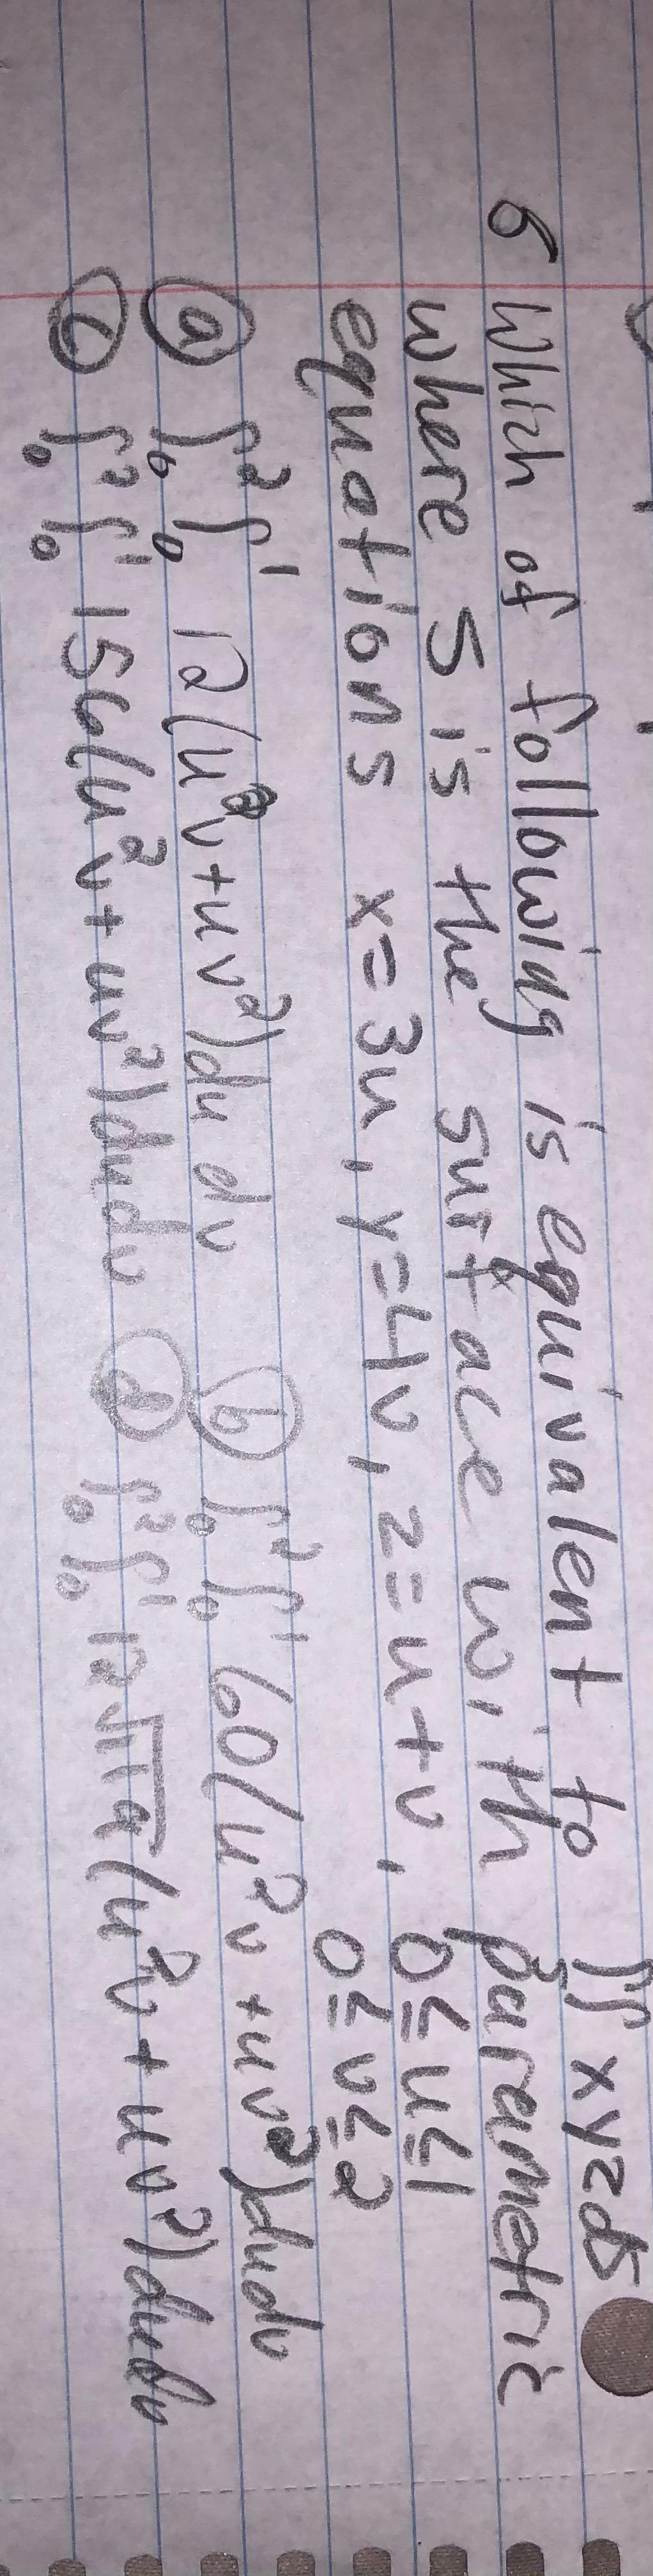 6 Which of following is equivalent to ∬ xyzds
where S is the surface with parametric
equations x=3u, y=4v, z=u+v, 0≤u≤1
0≤v≤2
(a) ∫₀² ∫₀¹ 12(u²v+uv²)du dv (b) ∫₀² ∫₀¹ 60(u²v+uv²)dudv
(c) ∫₀² ∫₀¹ 156(u²v+uv²)dudv (d) ∫₀² ∫₀¹ 12√119(u²v+uv²)dudv